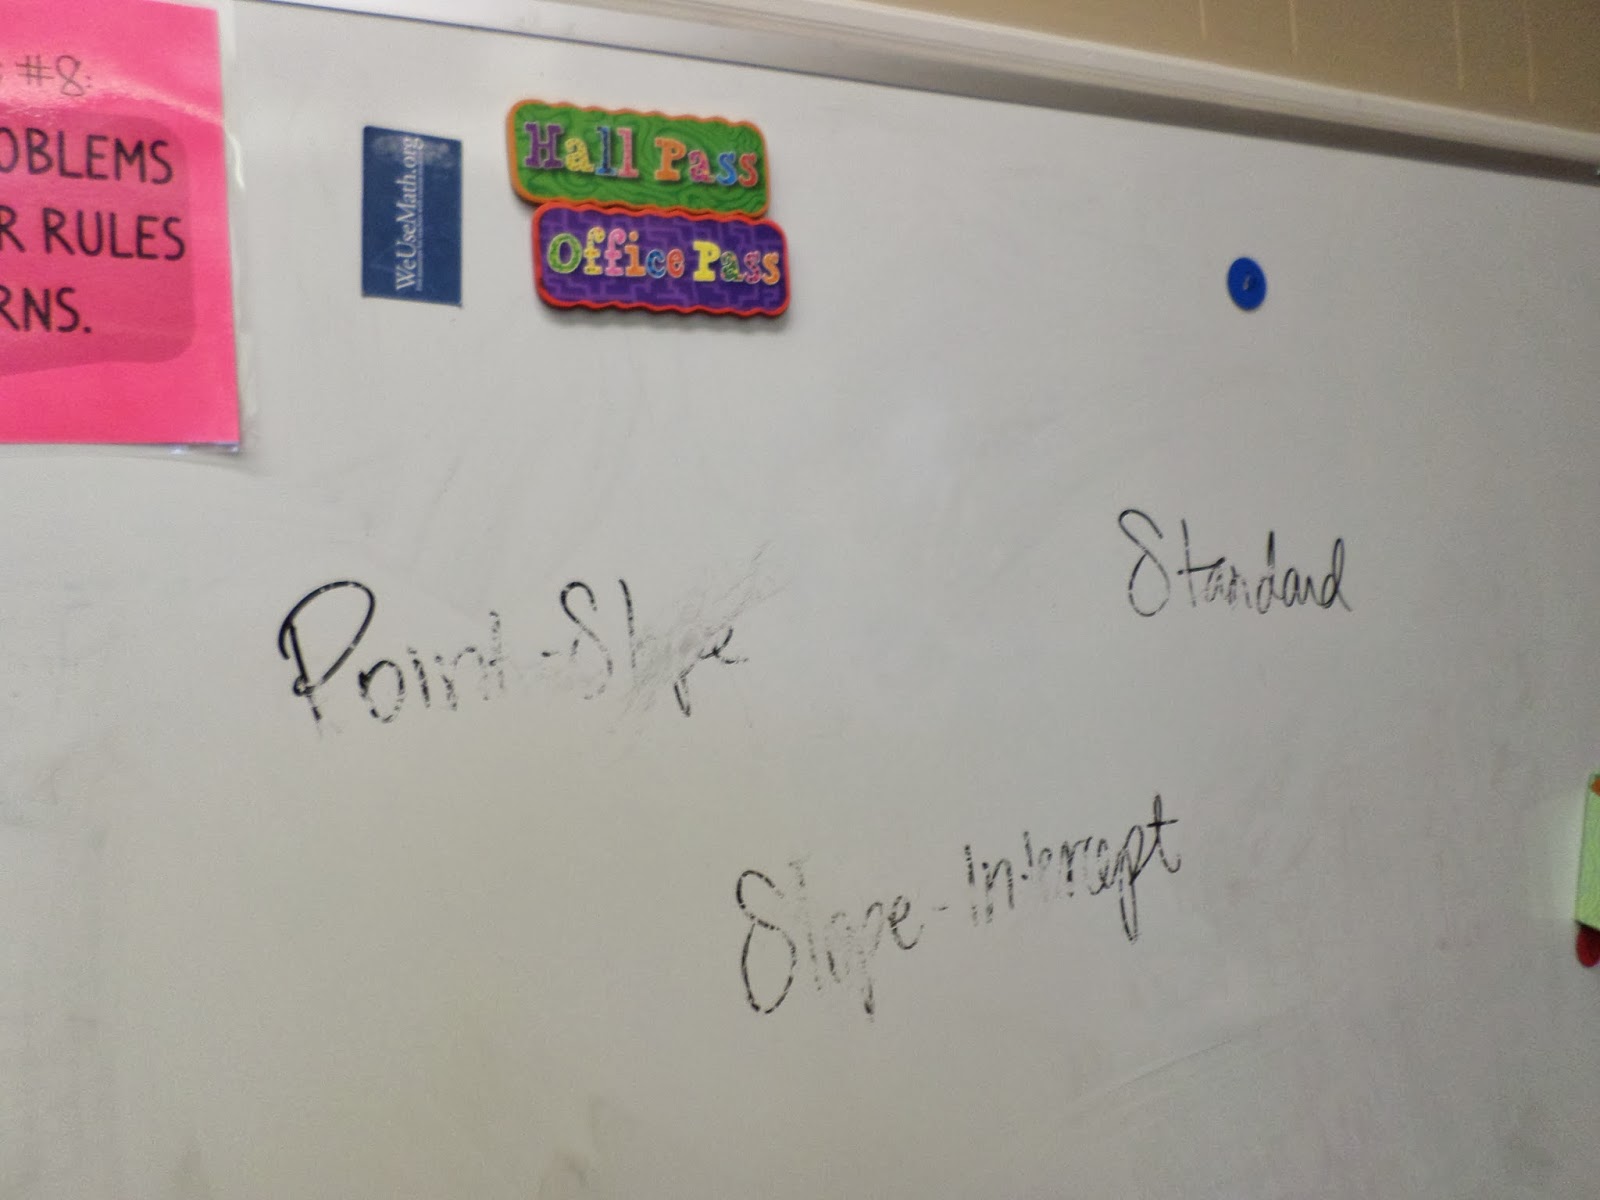 #8:
OBLEMS
R RULES
RNS.
WeUseMath.org
Hall Pass
Office Pass
Standard
Point-Slope
Slope-Intercept